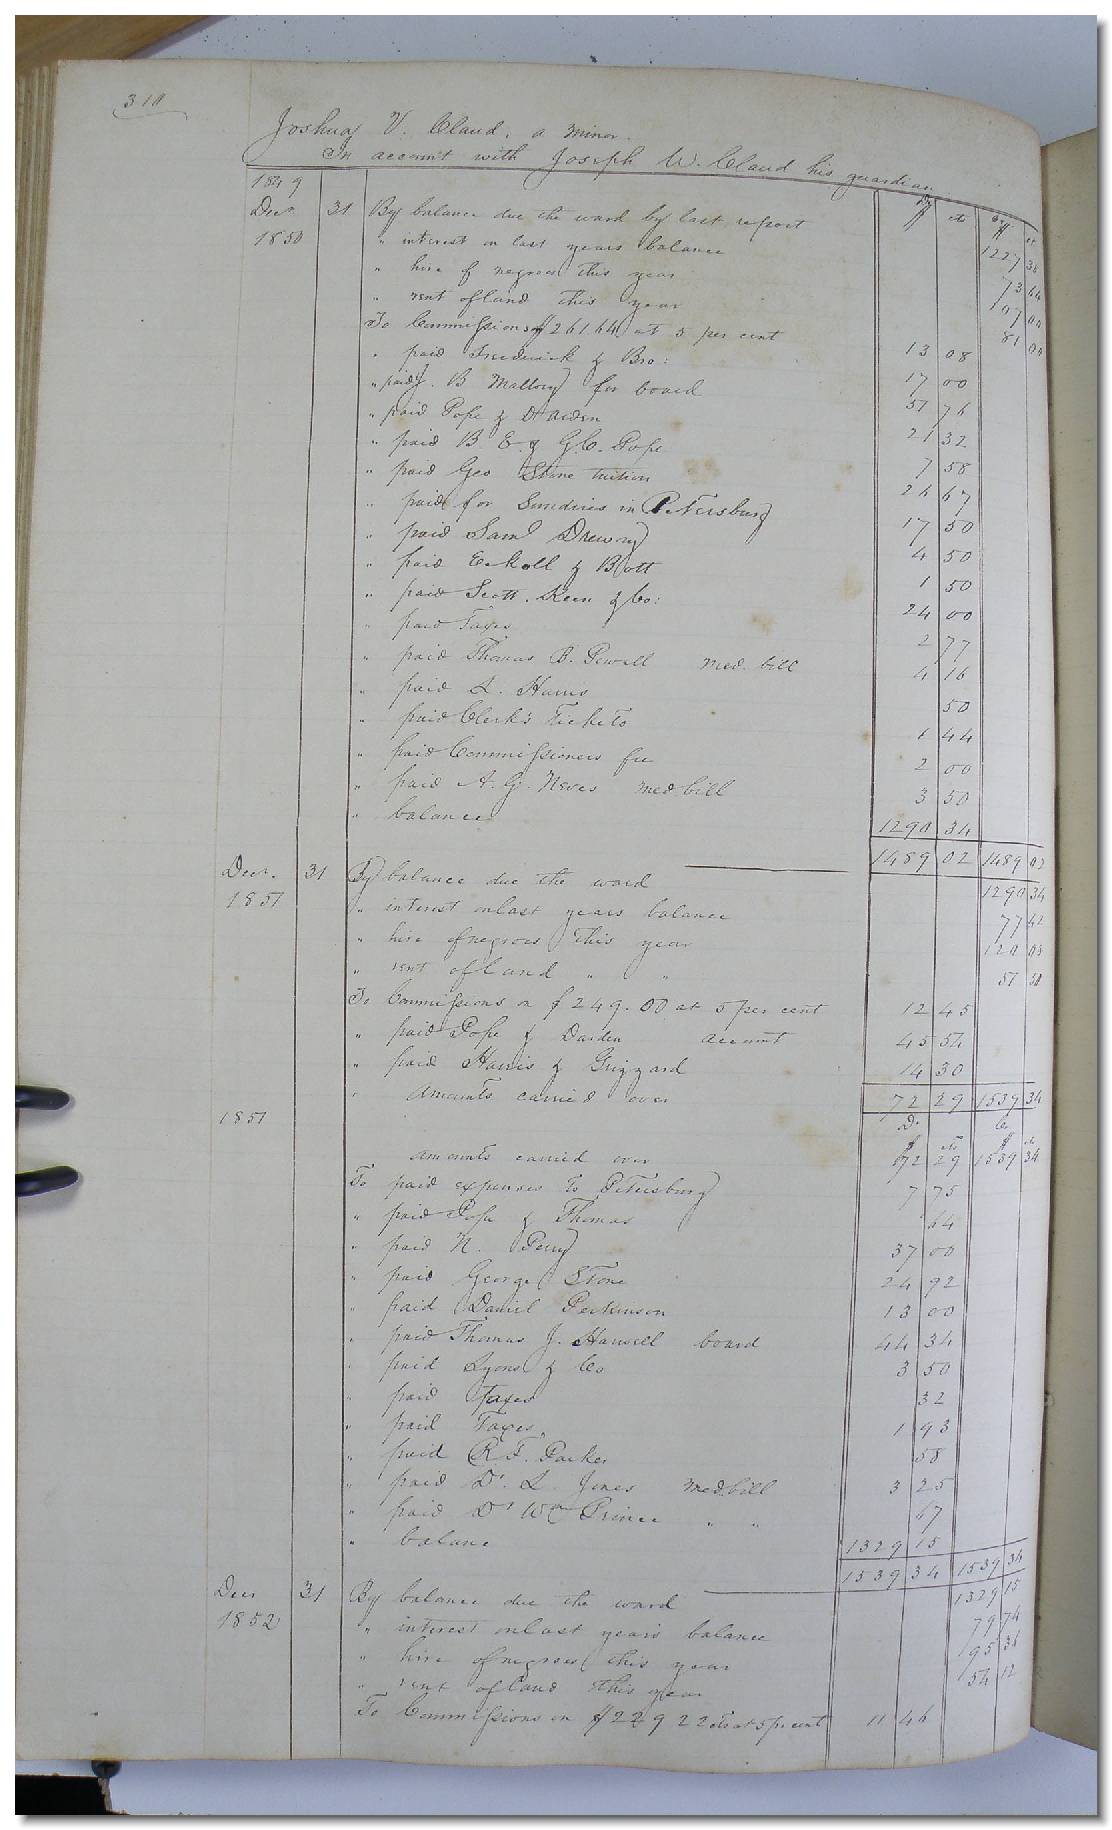 310
Joshua V. Claud, a minor.
In account with Joseph W. Claud his guardian
1849 $ cts $ ct
Decr 31 By balance due the ward by last report 1227 38
1850 " interest on last years balance 73 64
" hire of negroes this year 107 00
" rent of land this year 81 00
To Commissions $261.64 at 5 per cent 13 08
" paid Frederick & Bro: 17 00
" paid J. B Mallory for board 51 76
" paid Pope & Darden 21 32
" paid B E. & G.C. Pope 7 58
" paid Geo Stone tuition 26 67
" paid for Sundries in Petersburg 17 50
" paid Saml Drewry 4 50
" paid Eckoll & Bott 1 50
" paid Scott. Keen & Co: 24 00
" paid Taxes 2 77
" paid Thomas B. Sewell med. bill 4 16
" paid L. Harris 50
" paid Clerk's Tickets 1 44
" paid Commissioners fee 2 00
" paid A. G. Neves med bill 3 50
" balance 1290 34
1489 02 1489 02
Decr. 31 By balance due the ward 1290 34
1851 " interest on last years balance 77 42
" hire of negroes this year 120 00
" rent of land " " 51 58
To Commissions on $249.00 at 5 per cent 12 45
" paid Pope & Darden account 45 54
" paid Harris & Grizzard 14 30
" amounts carried over 72 29 1539 34
1851 Dr Cr
$ cts $ cts
amounts carried over 72 29 1539 34
To paid expenses to Petersburg 7 75
" paid Pope & Thomas 64
" paid N. Perry 37 00
" paid George Stone 24 92
" paid Daniel Perkinson 13 00
" paid Thomas J. Hansell board 44 34
" paid Lyons & Co 3 50
" paid Taxes 32
" paid Taxes. 1 93
" paid R F. Parker 58
" paid Dr L. Jones med bill 3 25
" paid Dr Wm Prince " " 67
" balance 1329 15
1539 34 1539 34
Decr 31 By balance due the ward 1329 15
1852 " interest on last year's balance 79 74
" hire of negroes this year 95 36
" rent of land this year 54 12
To Commissions on $229 22 cts at 5 pr cent 11 46